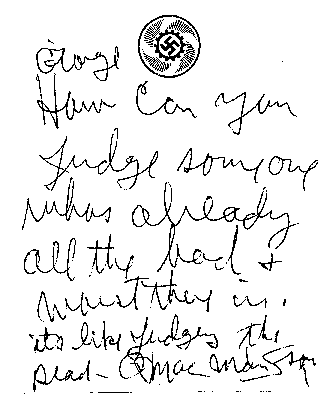 George
How Can you
Judge someone
whos already
all the bad &
worst they is.
its like Judges the
Dead - C Mac Manson